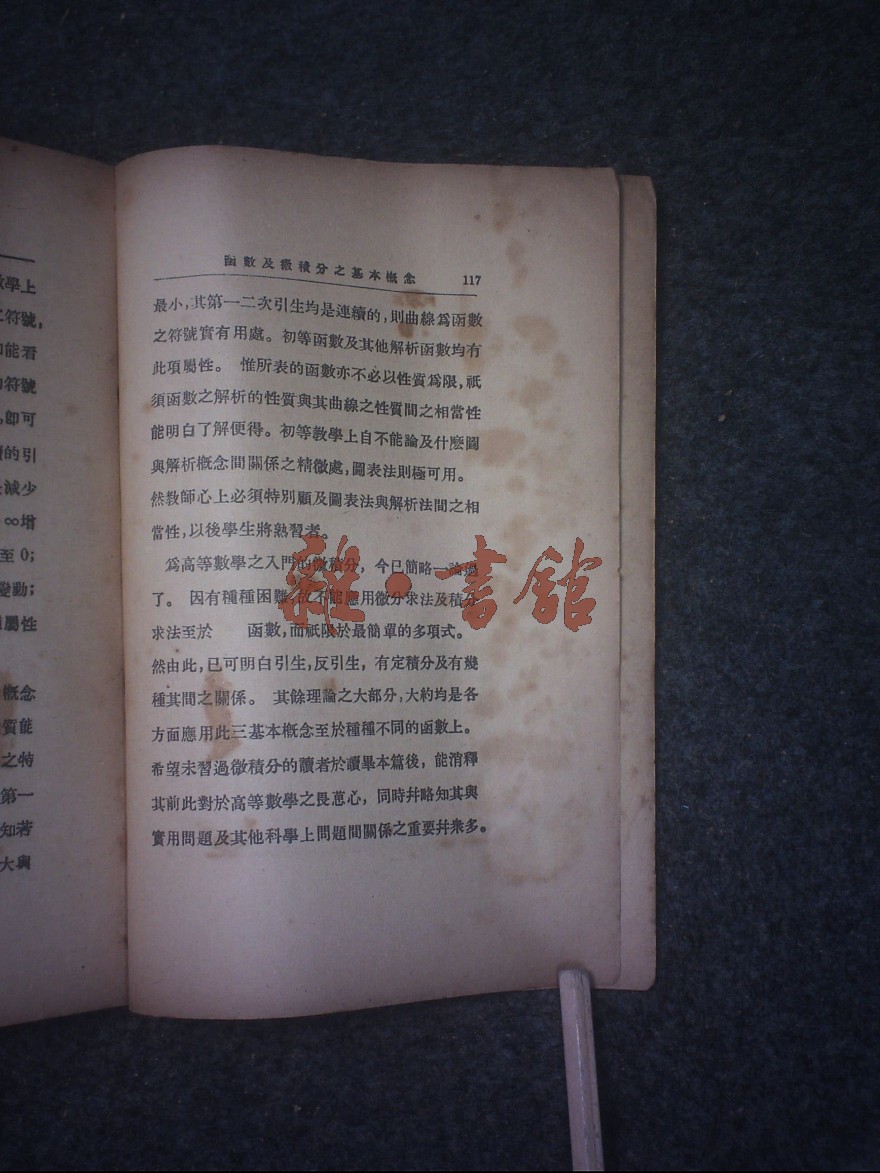 函數及微積分之基本概念 117
最小,其第一二次引生均是連續的,則曲線爲函數
之符號實有用處。初等函數及其他解析函數均有
此項屬性。惟所表的函數亦不必以性質爲限,祇
須函數之解析的性質與其曲線之性質間之相當性
能明白了解便得。初等教學上自不能論及什麽圖
與解析槪念間關係之精微處,圖表法則極可用。
然教師心上必須特別顧及圖表法與解析法間之相
當性,以後學生將熟習者。
爲高等數學之入門的微積分,今已簡略一論過
了。因有種種困難,故不能應用微分求法及積分
求法至於 函數,而祇限於最簡單的多項式。
然由此,已可明白引生,反引生,有定積分及有幾
種其間之關係。其餘理論之大部分,大約均是各
方面應用此三基本槪念至於種種不同的函數上。
希望未習過微積分的讀者於讀畢本篇後,能消釋
其前此對於高等數學之畏葸心,同時幷略知其與
實用問題及其他科學上問題間關係之重要幷衆多。
雜·書館
學上
符號,
能看
符號
,卽可
的引
減少
∞增
至 0;
變動;
屬性
槪念
質能
之特
第一
知若
大與